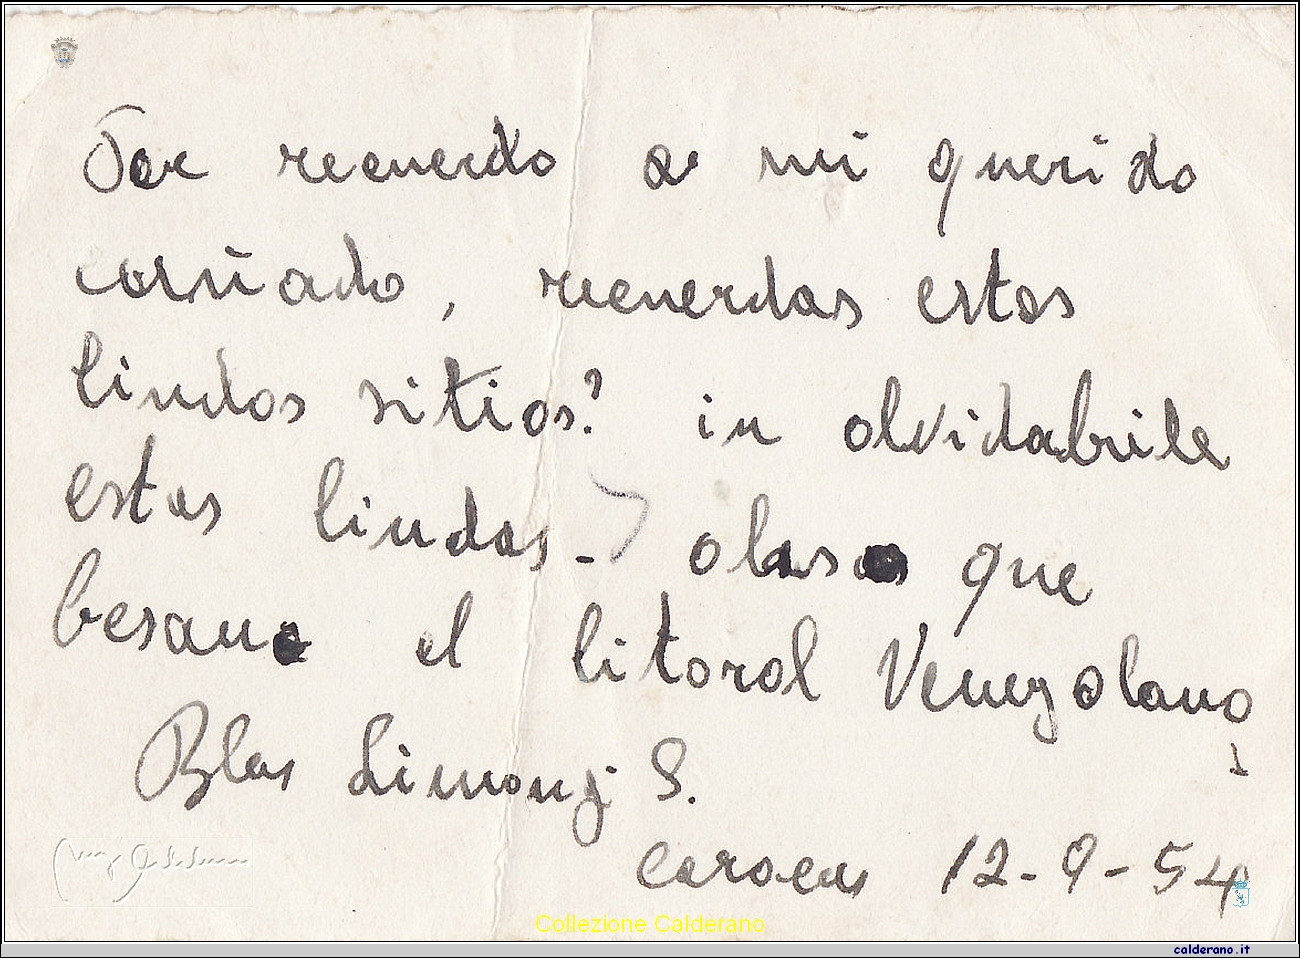 Por recuerdo a mi querido
coruñado, recuerdas estos
lindos sitios? in olvidabile
estas lindas- olas que
besan el litoral Venezolano
Blas Limongi S.
Caracas 12-9-54
Collezione Calderano
calderano.it